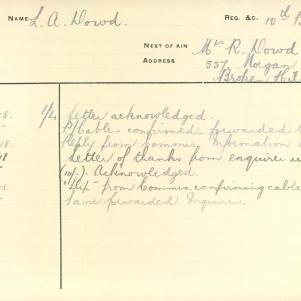 NAME L. A. Dowd. REG. &C. 10th
NEXT OF KIN Mr R. Dowd
ADDRESS 337 Morgan
Broken Hill
8. 1/4 Letter acknowledged.
Cable confirmed forwarded
18. Reply from Commrs. Information
18 Letter of thanks from enquirer
(10/-). Acknowledged.
18. from Commrs. confirming cable
same forwarded Inquirer.